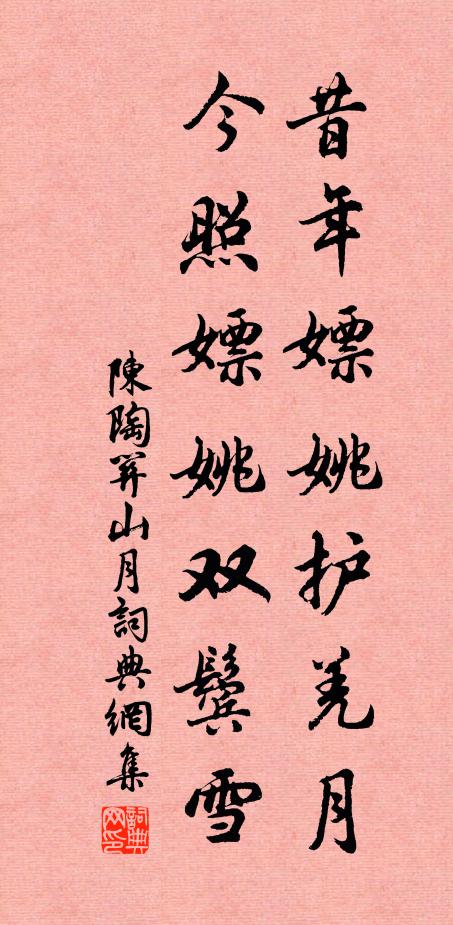 昔年嫖姚护羌月
今照嫖姚双鬓雪
陳陶关山月詞典網集
詞典网印